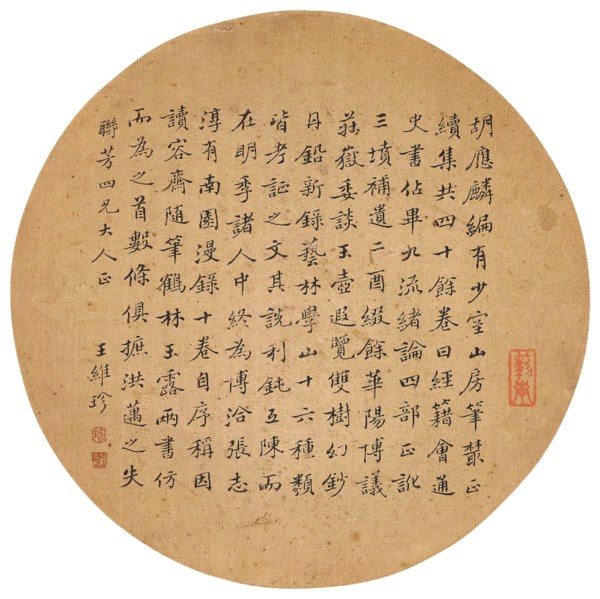 胡應麟編有少室山房筆叢正
續集共四十餘卷曰經籍會通
史書佔畢九流緒論四部正訛
三墳補遺二酉綴餘華陽博議
莊嶽委談玉壺遐覽雙樹幻鈔
丹鉛新錄藝林學山十六種類
皆考証之文其說利鈍互陳而
在明季諸人中終為博洽張志
淳有南園漫錄十卷自序稱因
讀容齋隨筆鶴林玉露兩書仿
而為之首數條俱摭洪邁之失
聯芳四兄大人正
王維珍